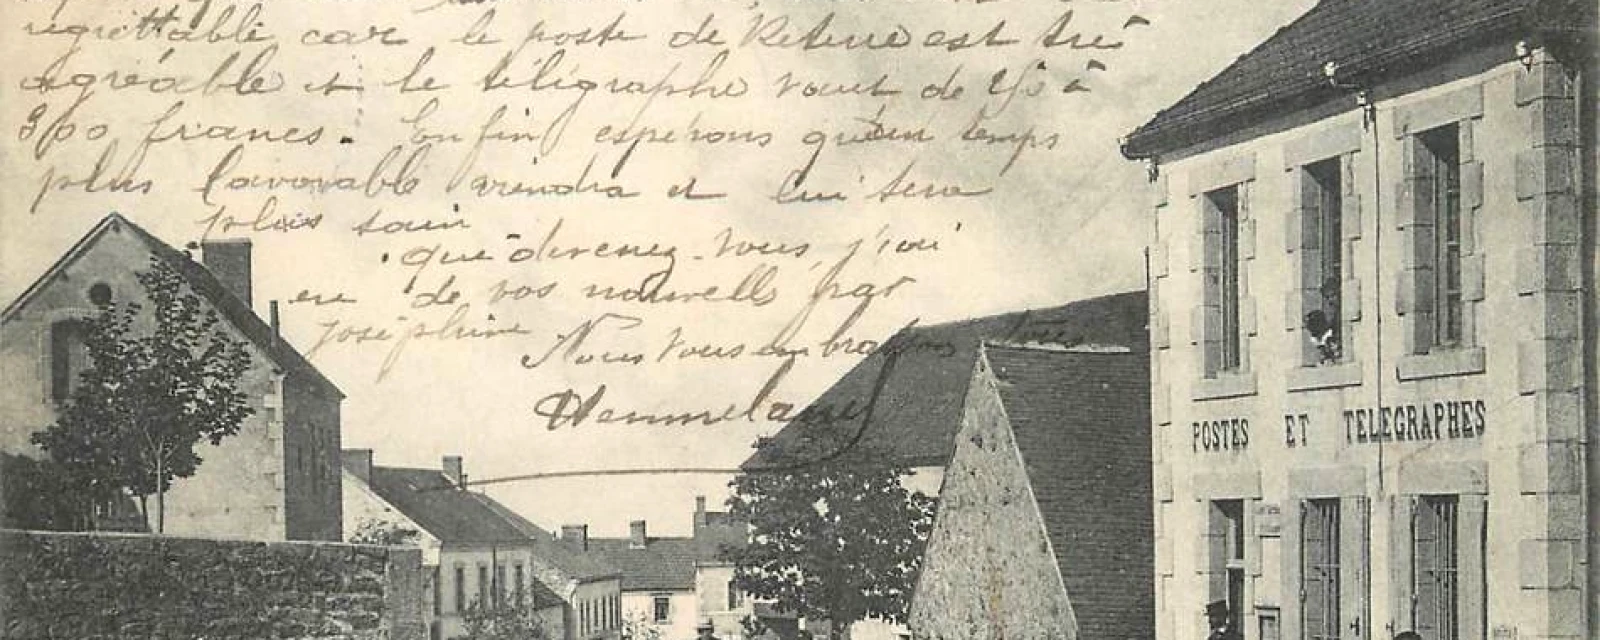 regrettable car le poste de Reterre est très
agréable et le télégraphe vaut de 250 à
300 francs. Enfin espérons qu'un temps
plus favorable viendra et lui sera
plus sain
que devenez-vous, j'ai
eu de vos nouvelles par
Joséphine
Nous vous embrassons tous
POSTES ET TELEGRAPHES